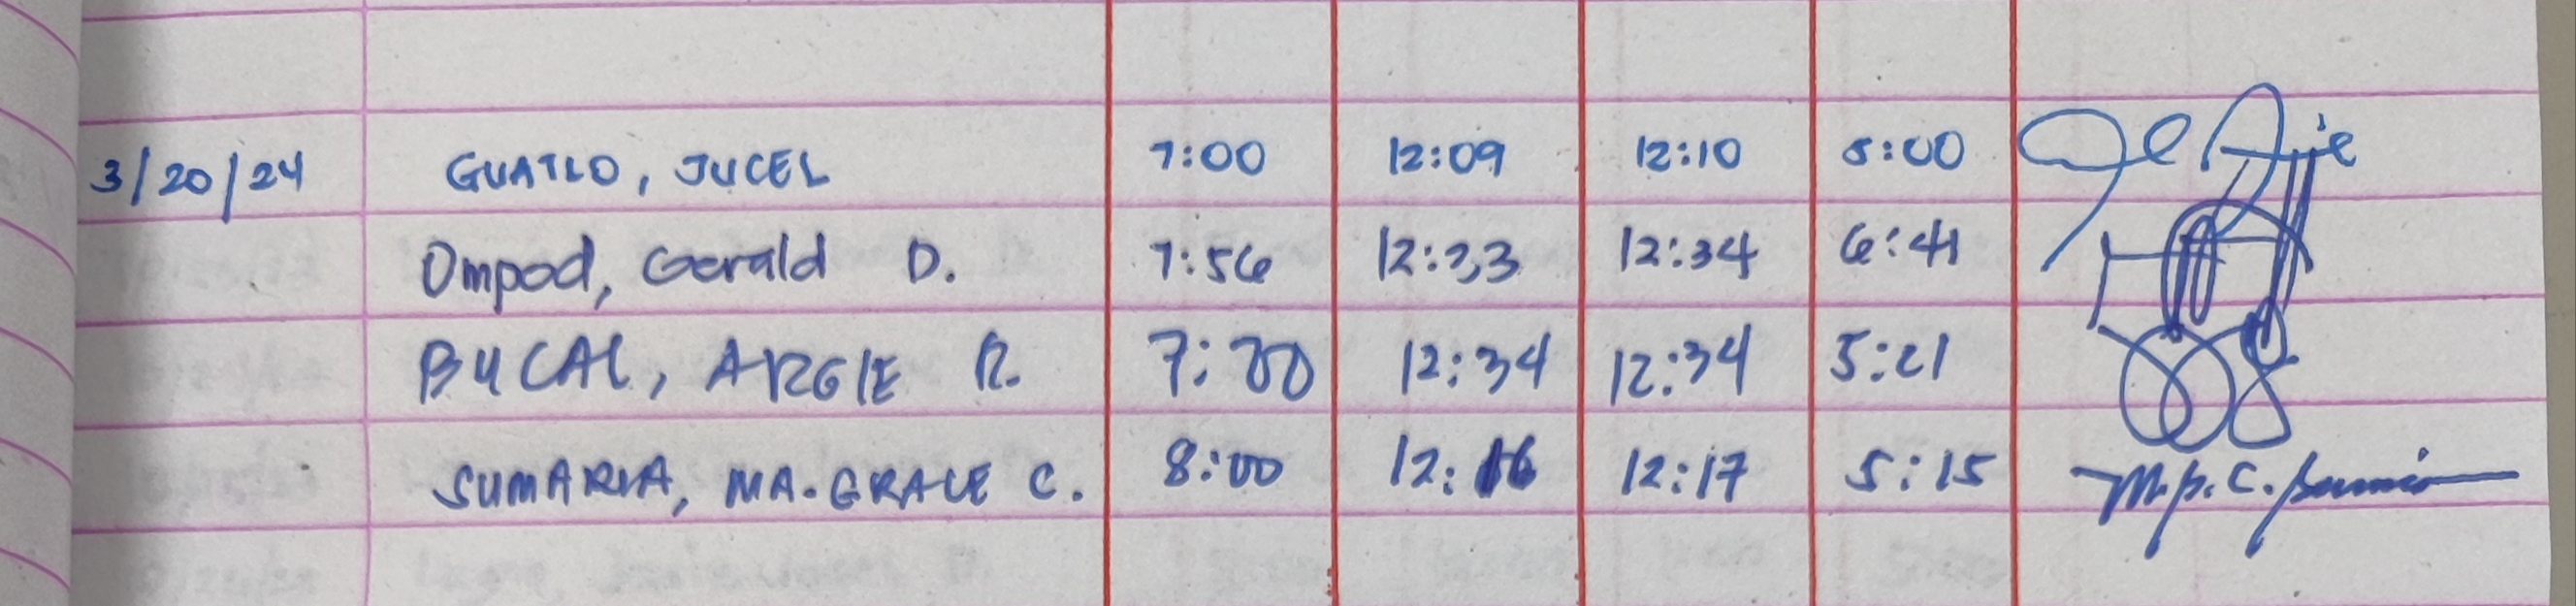 3/20/24 GUATLO, JUCEL 7:00 12:09 12:10 5:00
Ompod, Gerald D. 7:56 12:33 12:34 6:41
BUCAL, ARGIE R. 7:00 12:34 12:34 5:21
SUMARIA, MA. GRACE C. 8:00 12:16 12:17 5:15